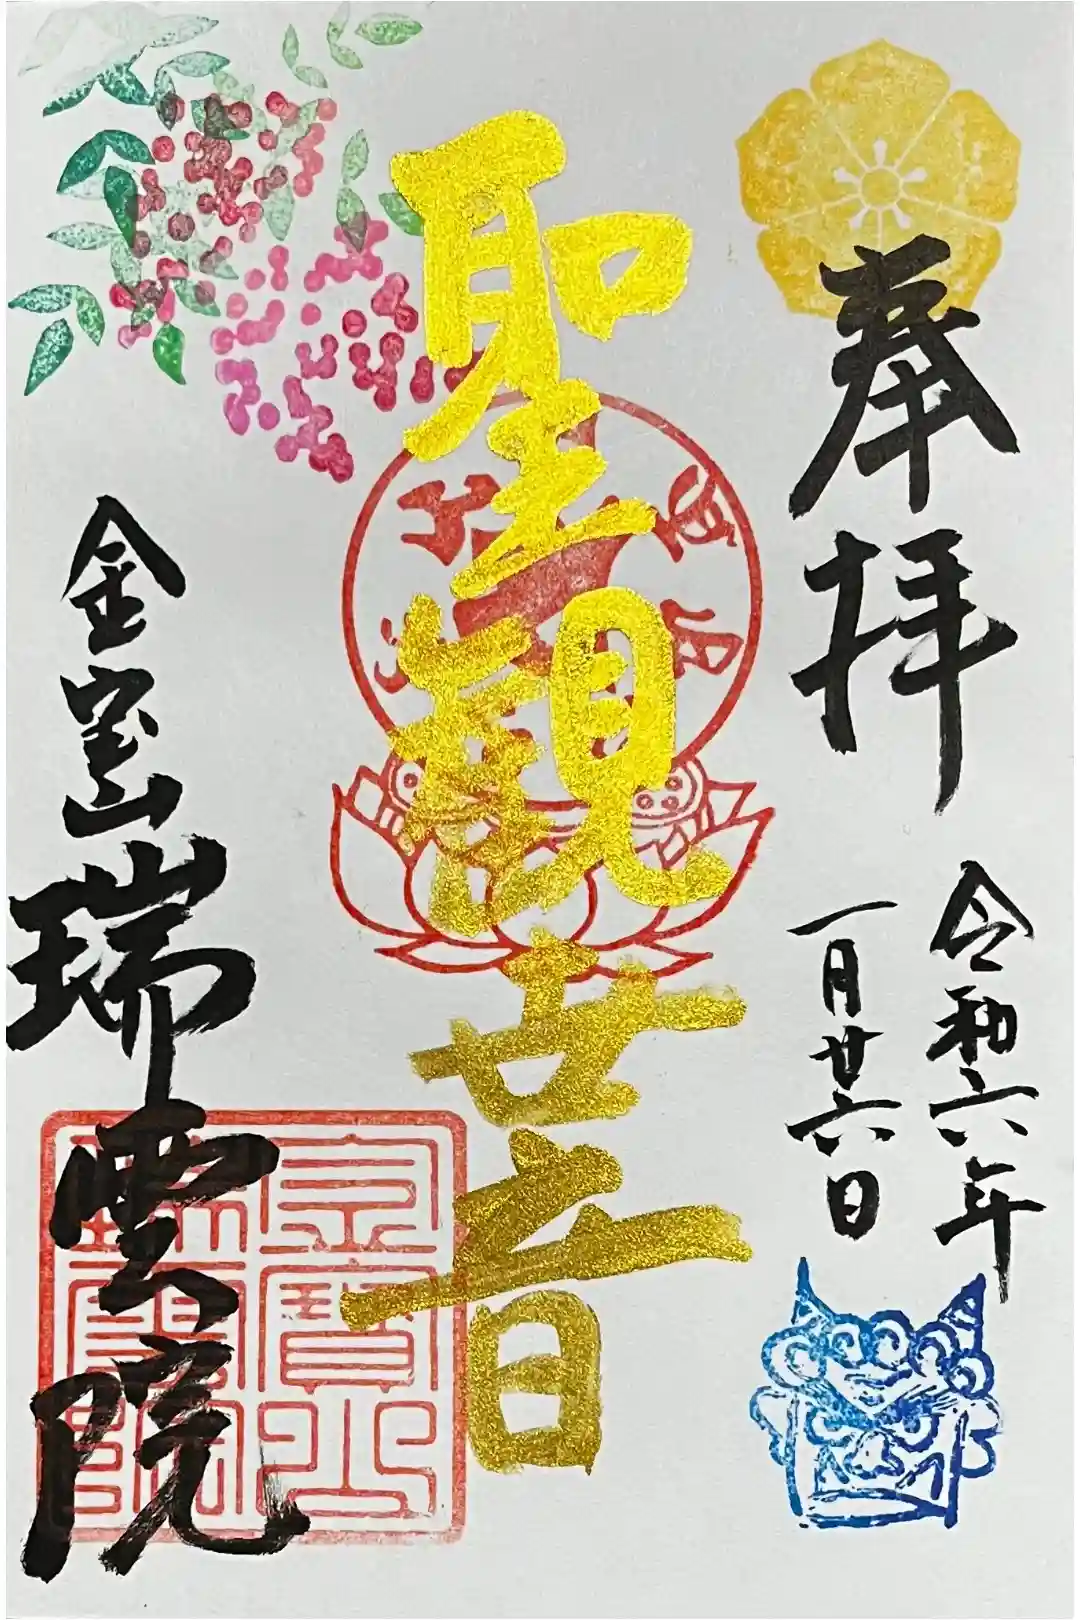 奉拝
令和六年
一月廿六日
聖観世音
金宝山
瑞雲院
金寶山
瑞雲院